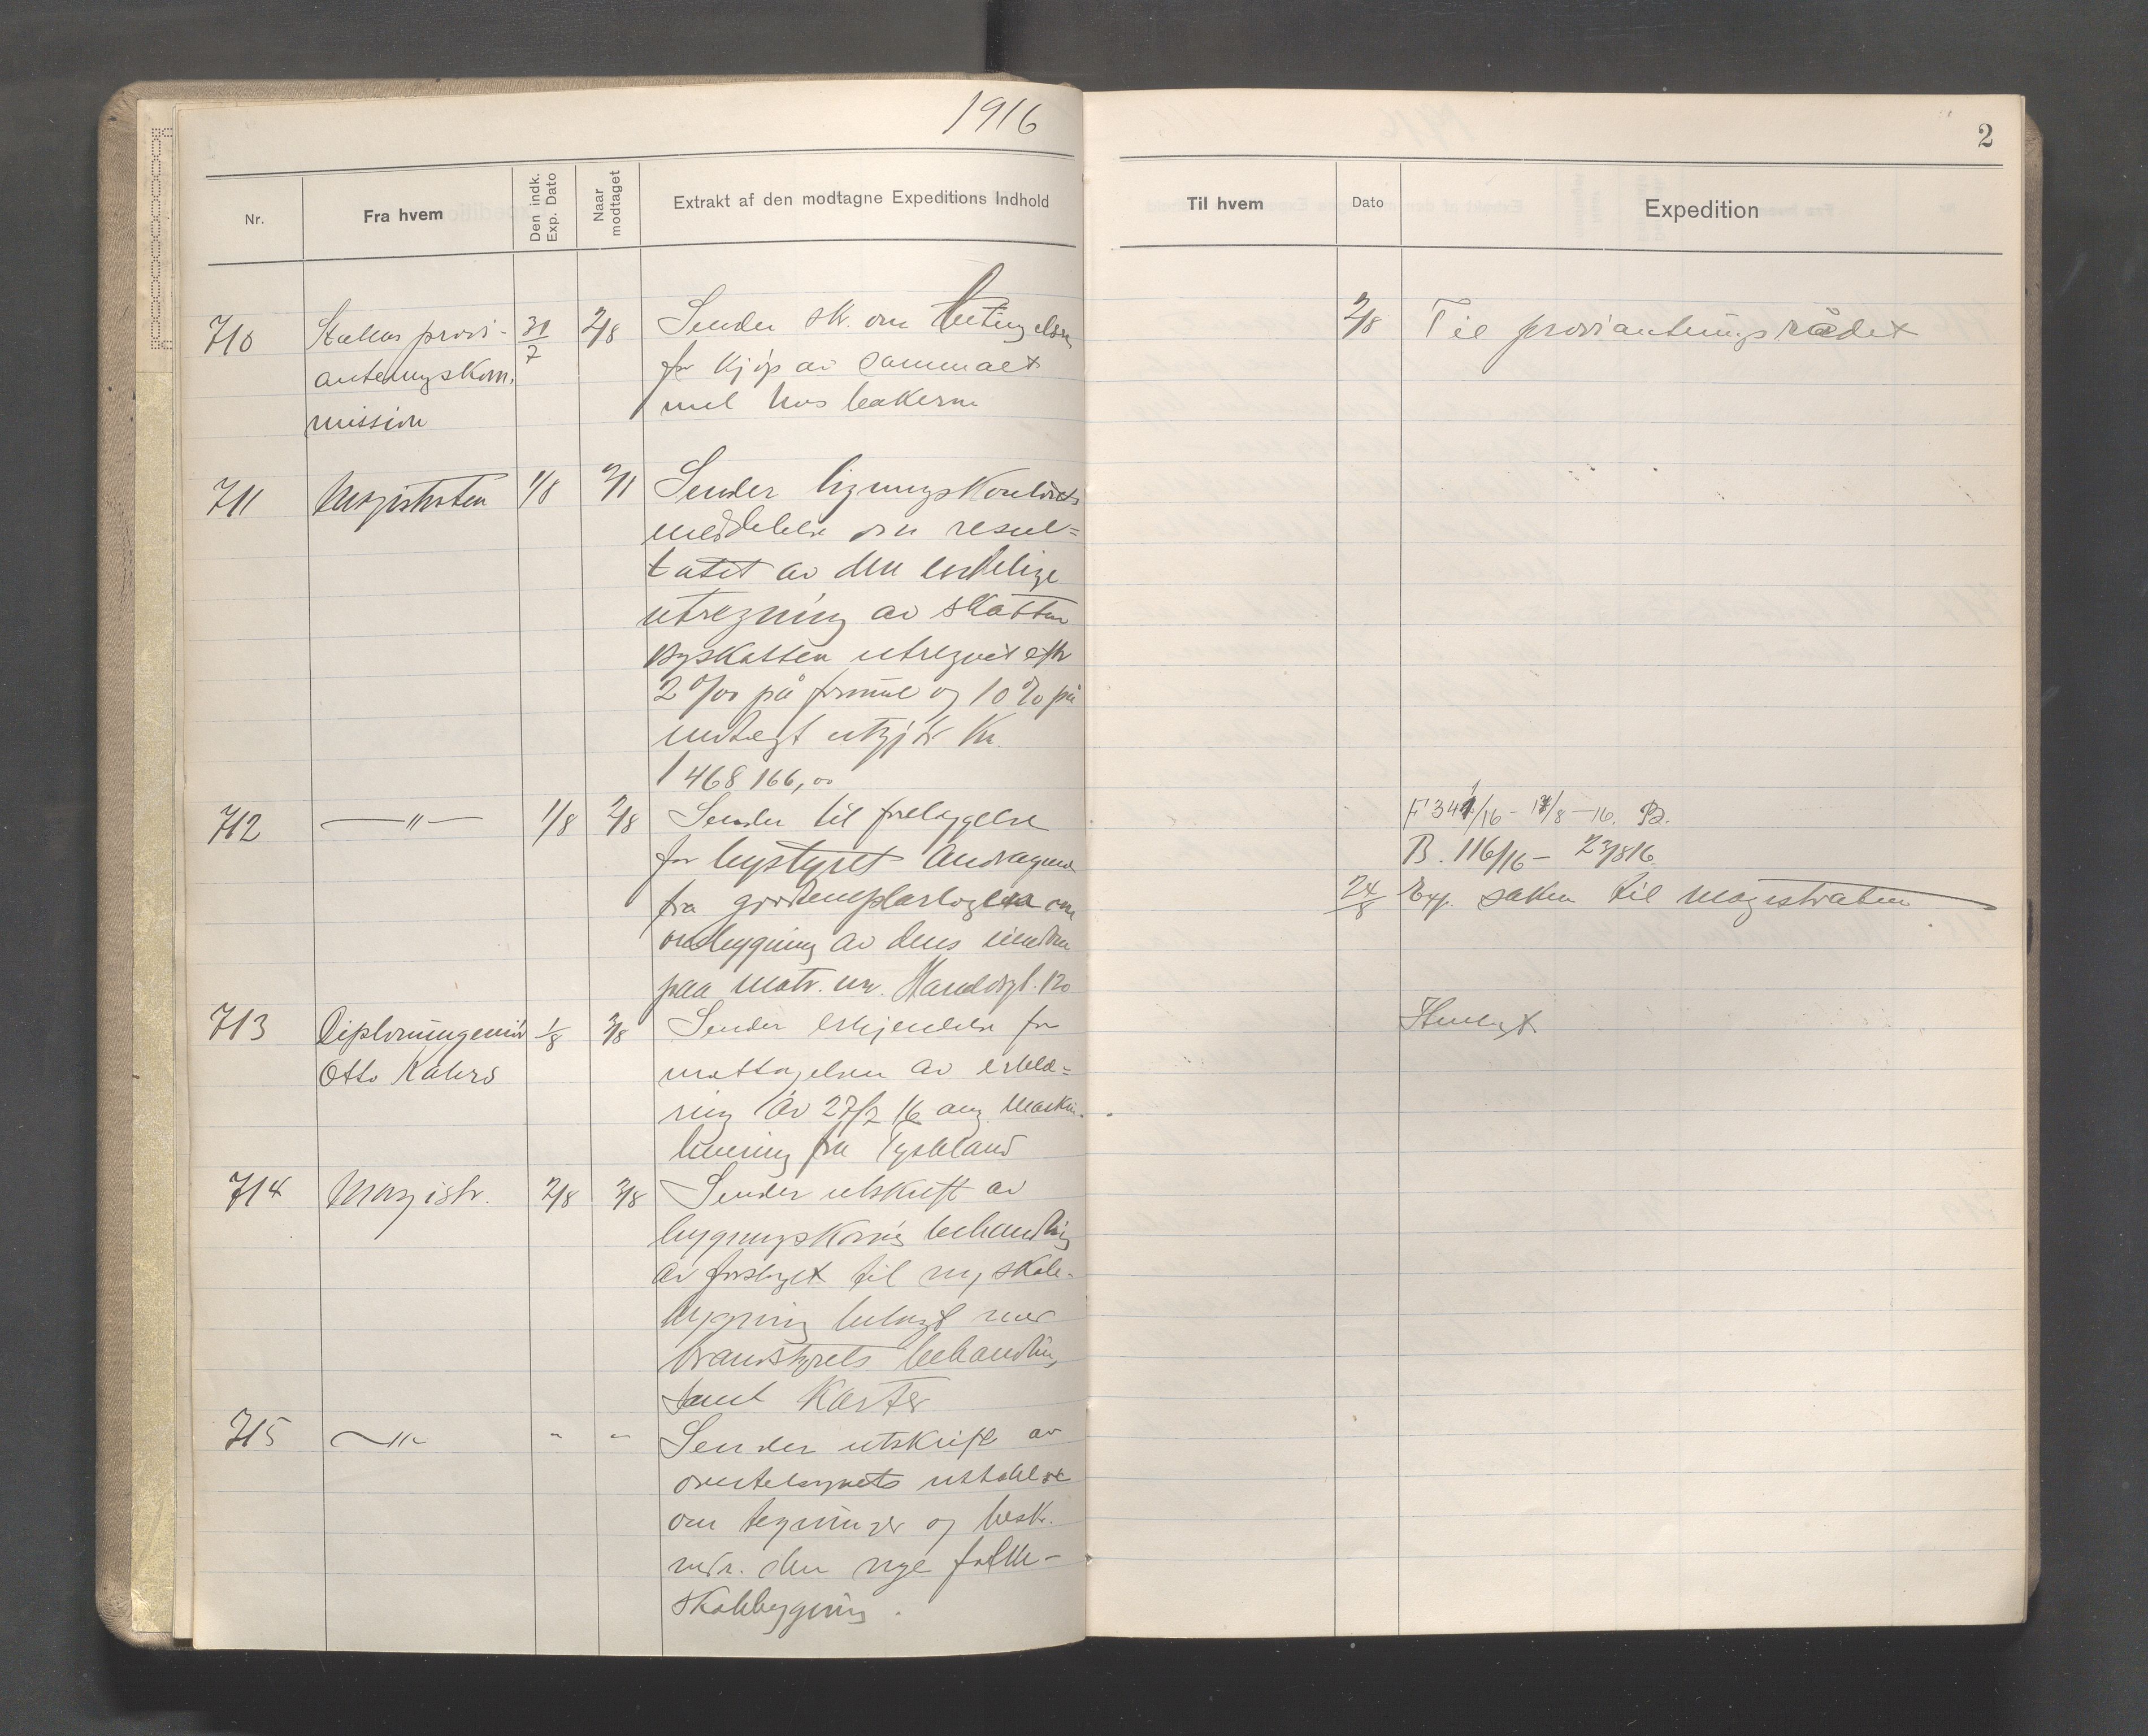 1916
Nr.
Fra hvem
Den indk.
Exp. Dato
Naar
modtaget
Extrakt af den modtagne Expeditions Indhold
710
Statens provi-
anteringskom.
mission
31/7
2/8
Sender skr. om betingelsen
for kjøp av sammalt
mel hos bakerne
711
Magistraten
1/8
2/8
Sender ligningskontorets
meddelelse om resul=
tatet av den endelige
utregning av skatten
Byskatten utregnet efter
2 ‰ på formue og 10 % på
indtægt utgjør Kr.
1 468 166,00
712
— " —
1/8
2/8
Sender til forelæggelse
for bystyret Andragende
fra godtemplarlogen om
ombygning av dens eiendom
paa matr. nr. Haraldsgt. 120
713
Diplomingeniør
Otto Kahrs
1/8
3/8
Sender erkjendelse for
mottagelsen av erklæ=
ring av 27/7 16 ang. Maskin-
levering fra Tyskland
714
Magistr.
2/8
3/8
Sender utskrift av
bygningskom's behandling
av forslaget til ny skole-
bygning bilagt med
brandstyrets behandling
samt Karter
715
— " —
"
"
Sender utskrift av
uttalelse
om tegninger og besk.
vedr. den nye folke-
skolebygning.
2
Til hvem
Dato
Expedition
2/8
Til provianteringsrådet
F 341/16 - 17/8 - 16. B.
B. 116/16 - 23/8 16.
24/8
Exp. saken til magistraten
Henlagt